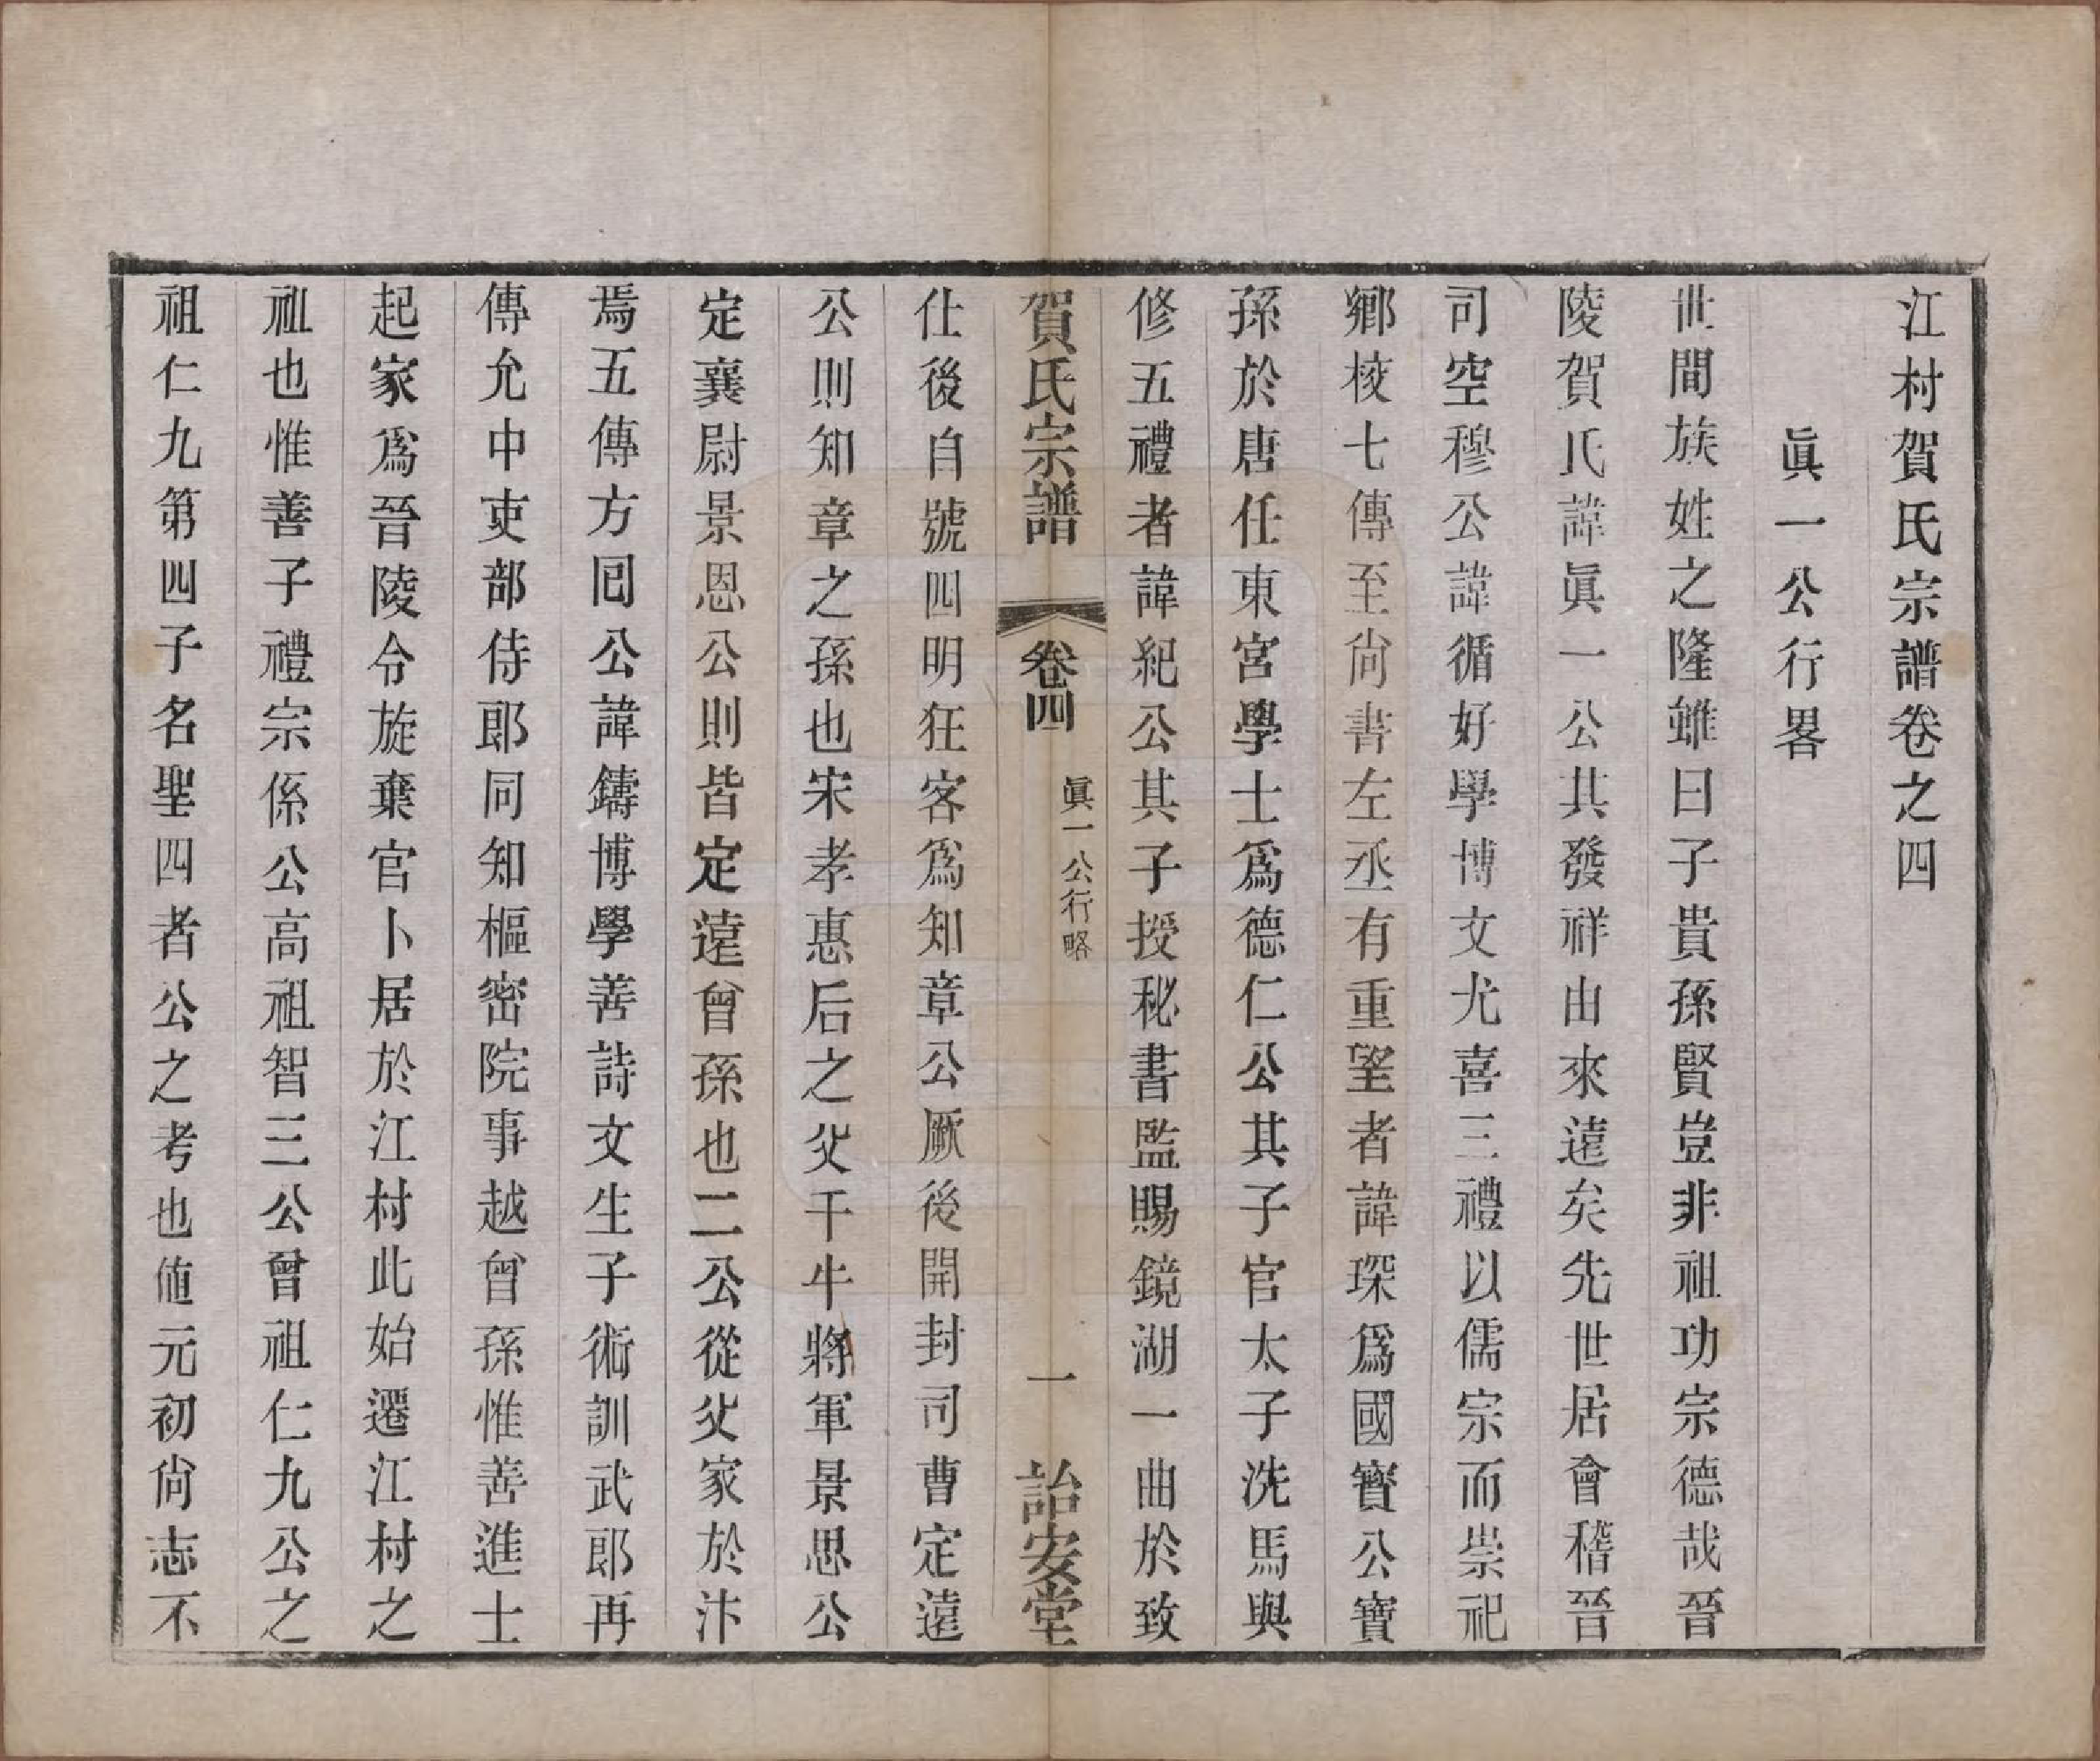 江村賀氏宗譜卷之四
眞一公行畧
世間族姓之隆雖曰子貴孫賢豈非祖功宗德哉晉
陵賀氏諱眞一公其發祥由來遠矣先世居會稽晉
司空穆公諱循好學博文尤喜三禮以儒宗而崇祀
鄉校七傳至尙書左丞有重望者諱琛爲國寶公寶
孫於唐任東宮學士爲德仁公其子官太子洗馬與
修五禮者諱紀公其子授秘書監賜鏡湖一曲於致
賀氏宗譜 卷四 眞一公行略 一 詒安堂
仕後自號四明狂客爲知章公厥後開封司曹定遠
公則知章之孫也宋孝惠后之父千牛將軍景思公
定襄尉景恩公則皆定遠曾孫也二公從父家於汴
焉五傳方囘公諱鑄博學善詩文生子術訓武郞再
傳允中吏部侍郞同知樞密院事越曾孫惟善進士
起家爲晉陵令旋棄官卜居於江村此始遷江村之
祖也惟善子禮宗係公高祖智三公曾祖仁九公之
祖仁九第四子名聖四者公之考也値元初尙志不